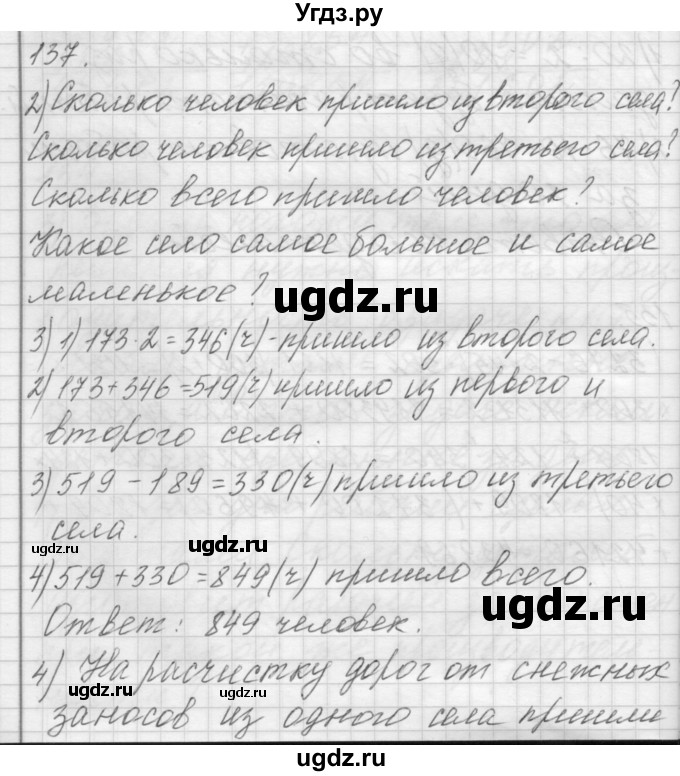 Угдз.ру
137.
2) Сколько человек пришло из второго села?
Сколько человек пришло из третьего села?
Сколько всего пришло человек?
Какое село самое большое и самое
маленькое?
ugdz.ru
3) 1) 173·2=346(ч)-пришло из второго села.
2) 173+346=519(ч) пришло из первого и
второго села.
3) 519-189=330(ч) пришло из третьего
села.
ugdz.ru
ugdz.ru
4) 519+330=849(ч) пришло всего.
ugdz.ru
Ответ: 849 человек.
4) На расчистку дорог от снежных
ugdz.ru
ugdz.ru
заносов из одного села пришли
ugdz.ru